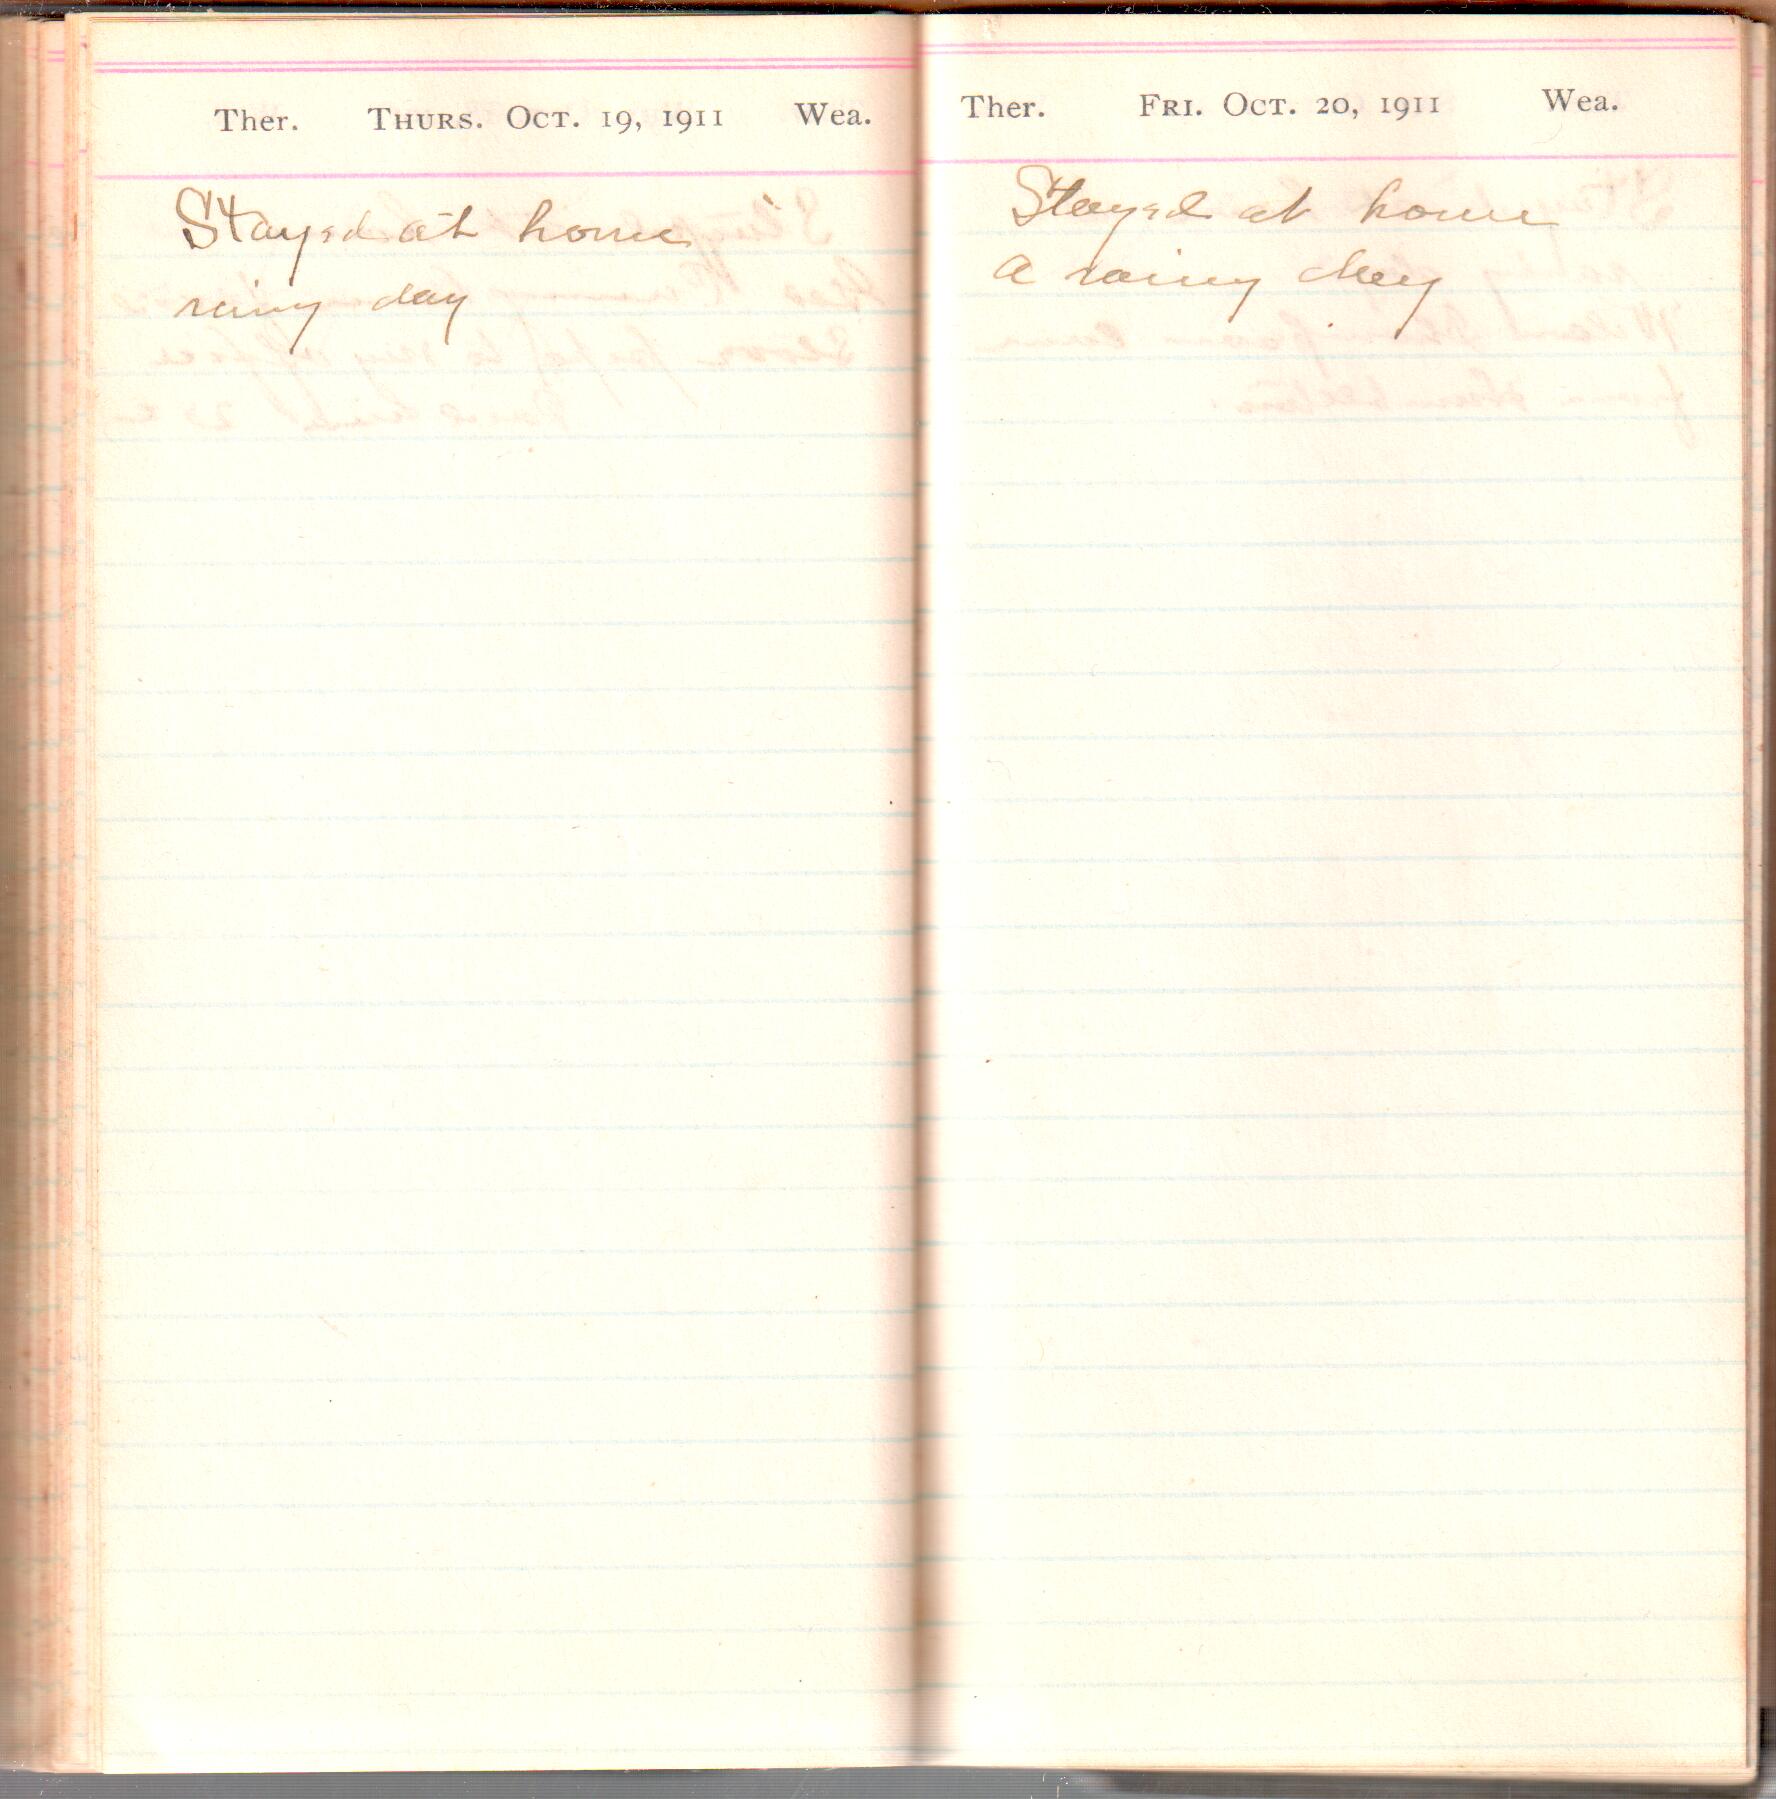 Ther. THURS. OCT. 19, 1911 Wea.
Stayed at home
rainy day
Ther. FRI. OCT. 20, 1911 Wea.
Stayed at home
a rainy day